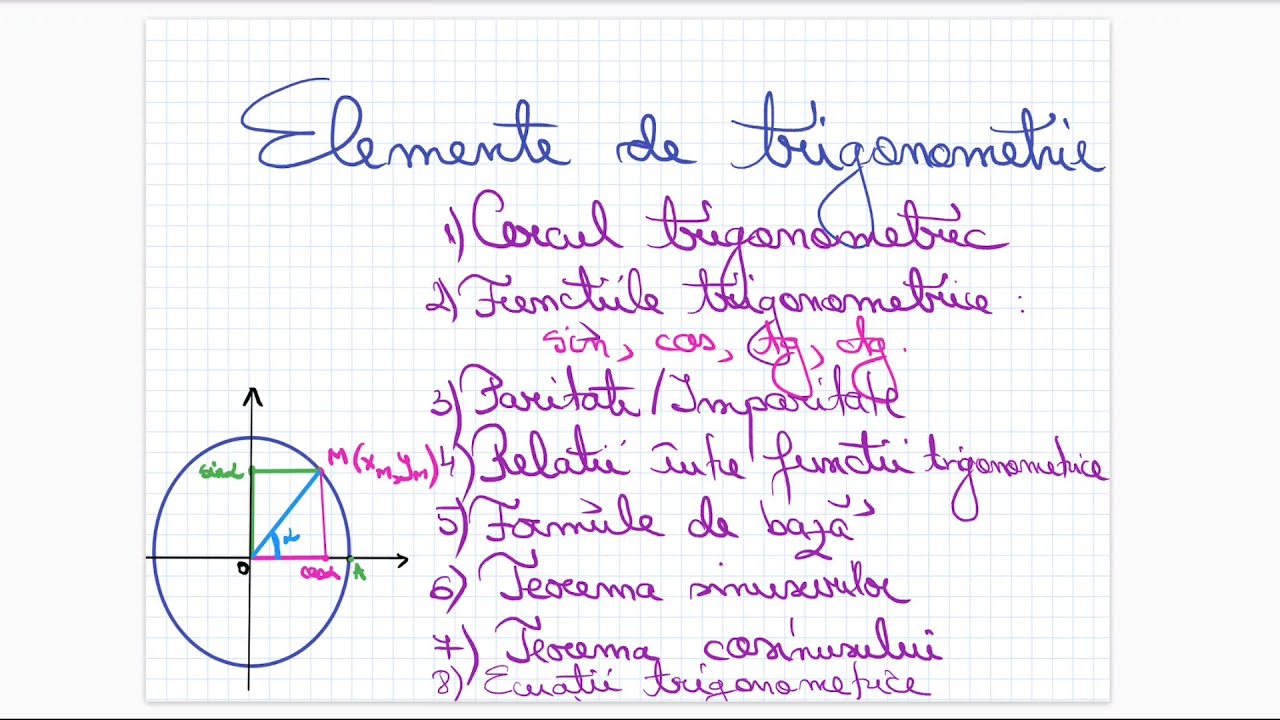 Elemente de trigonometrie
1) Cercul trigonometric
2) Functiile trigonometrice :
sin, cos, tg, ctg.
3) Paritate / Imparitate
4) Relatii între functii trigonometrice
5) Formule de bază
6) Teorema sinusurilor
7) Teorema cosinusului
8) Ecuații trigonometrice
sinα
M(xₘ, yₘ)
α
O
cosα
A